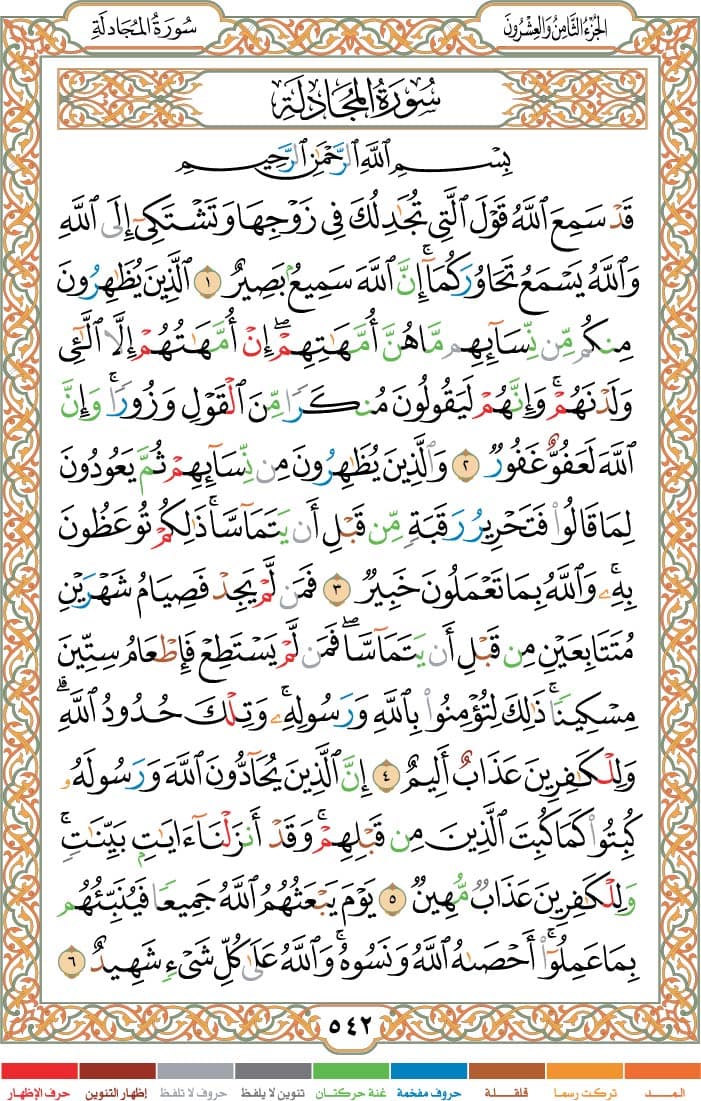 الجزء الثامن والعشرون
سورة المجادلة
سُورَةُ المُجَادلَةِ
بِسْمِ ٱللَّهِ ٱلرَّحْمَٰنِ ٱلرَّحِيمِ
قَدْ سَمِعَ ٱللَّهُ قَوْلَ ٱلَّتِى تُجَٰدِلُكَ فِى زَوْجِهَا وَتَشْتَكِىٓ إِلَى ٱللَّهِ
وَٱللَّهُ يَسْمَعُ تَحَاوُرَكُمَآ ۚ إِنَّ ٱللَّهَ سَمِيعٌۢ بَصِيرٌ ١ ٱلَّذِينَ يُظَٰهِرُونَ
مِنكُم مِّن نِّسَآئِهِم مَّا هُنَّ أُمَّهَٰتِهِمْ ۖ إِنْ أُمَّهَٰتُهُمْ إِلَّا ٱلَّٰٓـِٔى
وَلَدْنَهُمْ ۚ وَإِنَّهُمْ لَيَقُولُونَ مُنكَرًا مِّنَ ٱلْقَوْلِ وَزُورًا ۚ وَإِنَّ
ٱللَّهَ لَعَفُوٌّ غَفُورٌ ٢ وَٱلَّذِينَ يُظَٰهِرُونَ مِن نِّسَآئِهِمْ ثُمَّ يَعُودُونَ
لِمَا قَالُوا۟ فَتَحْرِيرُ رَقَبَةٍ مِّن قَبْلِ أَن يَتَمَآسَّا ۚ ذَٰلِكُمْ تُوعَظُونَ
بِهِۦ ۚ وَٱللَّهُ بِمَا تَعْمَلُونَ خَبِيرٌ ٣ فَمَن لَّمْ يَجِدْ فَصِيَامُ شَهْرَيْنِ
مُتَتَابِعَيْنِ مِن قَبْلِ أَن يَتَمَآسَّا ۖ فَمَن لَّمْ يَسْتَطِعْ فَإِطْعَامُ سِتِّينَ
مِسْكِينًا ۚ ذَٰلِكَ لِتُؤْمِنُوا۟ بِٱللَّهِ وَرَسُولِهِۦ ۚ وَتِلْكَ حُدُودُ ٱللَّهِ ۗ
وَلِلْكَٰفِرِينَ عَذَابٌ أَلِيمٌ ٤ إِنَّ ٱلَّذِينَ يُحَآدُّونَ ٱللَّهَ وَرَسُولَهُۥ
كُبِتُوا۟ كَمَا كُبِتَ ٱلَّذِينَ مِن قَبْلِهِمْ ۚ وَقَدْ أَنزَلْنَآ ءَايَٰتٍۭ بَيِّنَٰتٍ ۚ
وَلِلْكَٰفِرِينَ عَذَابٌ مُّهِينٌ ٥ يَوْمَ يَبْعَثُهُمُ ٱللَّهُ جَمِيعًا فَيُنَبِّئُهُم
بِمَا عَمِلُوٓا۟ ۚ أَحْصَىٰهُ ٱللَّهُ وَنَسُوهُ ۚ وَٱللَّهُ عَلَىٰ كُلِّ شَىْءٍ شَهِيدٌ ٦
٥٤٢
المـــد تركت رسما قلقـلة حروف مفخمة غنة حركتان تنوين لا يلفظ حروف لا تلفظ إظهار التنوين حرف الإظهار